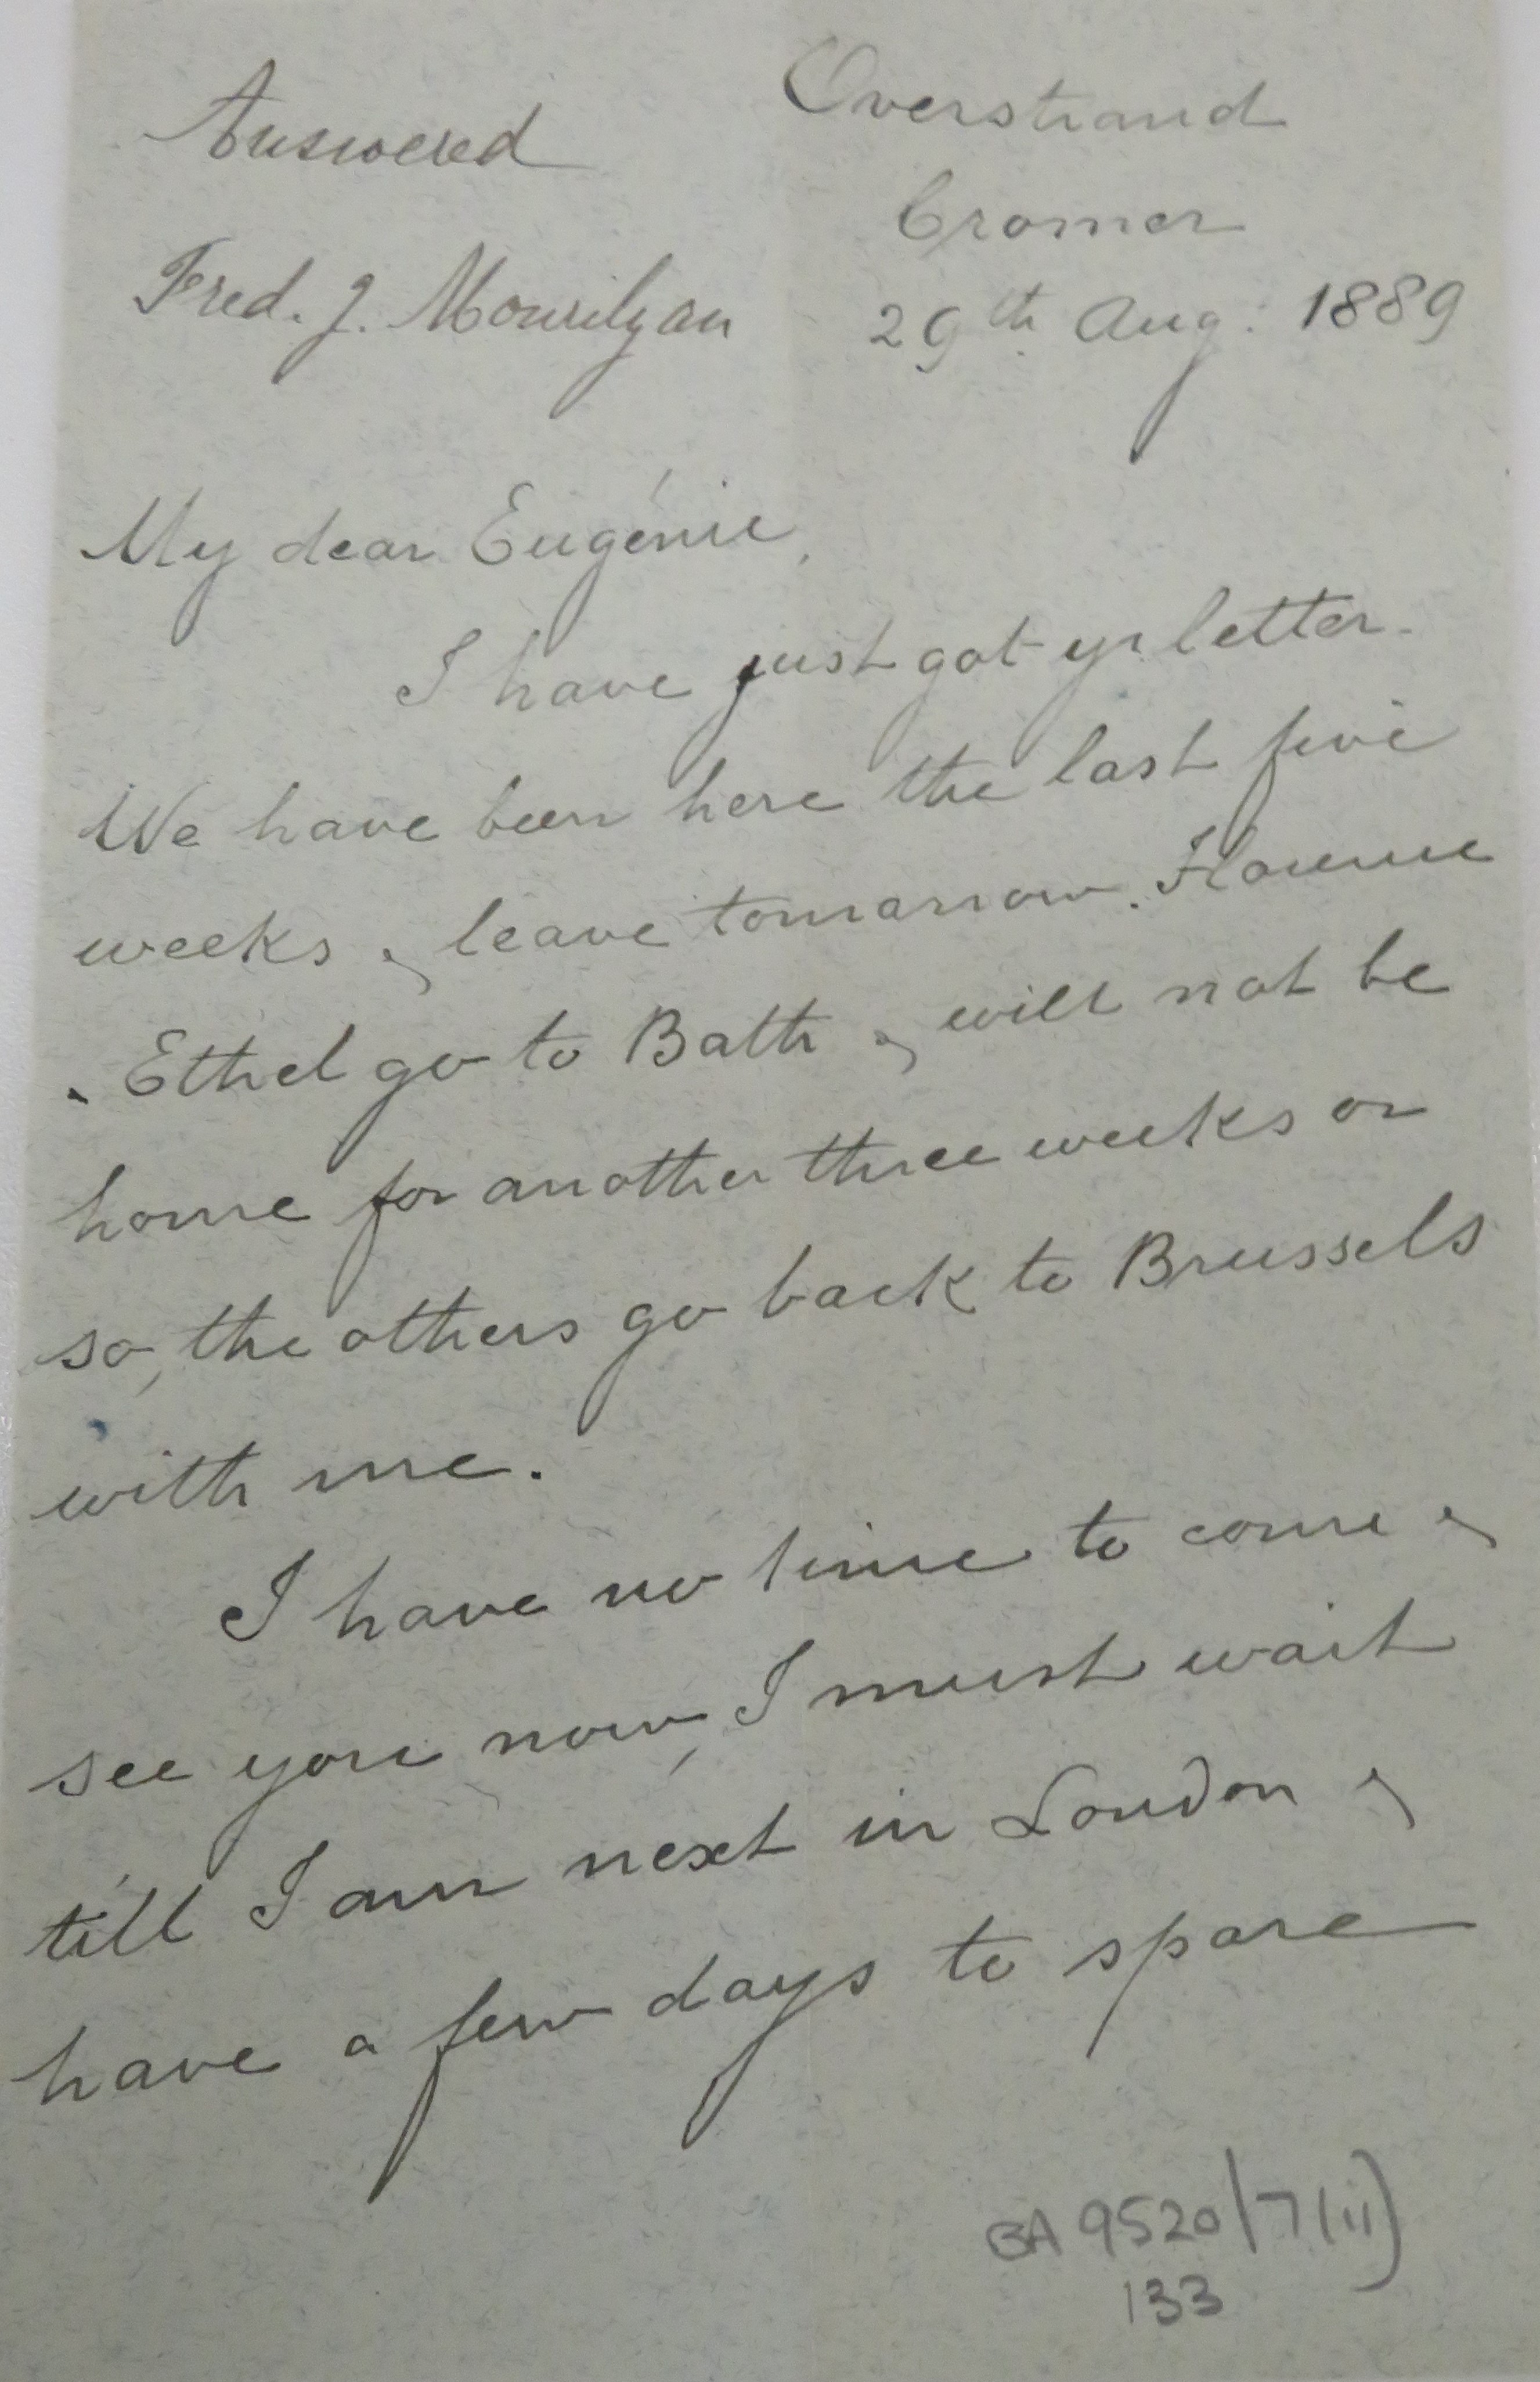 Answered
Fred. J. Mourilyan
Overstrand
Cromer
29th Aug: 1889
My dear Eugénie,
I have just got yr letter.
We have been here the last five
weeks & leave tomorrow. Florence
& Ethel go to Bath & will not be
home for another three weeks or
so, the others go back to Brussels
with me.
I have no time to come &
see you now, I must wait
till I am next in London &
have a few days to spare
BA 9520/7(ii)
133